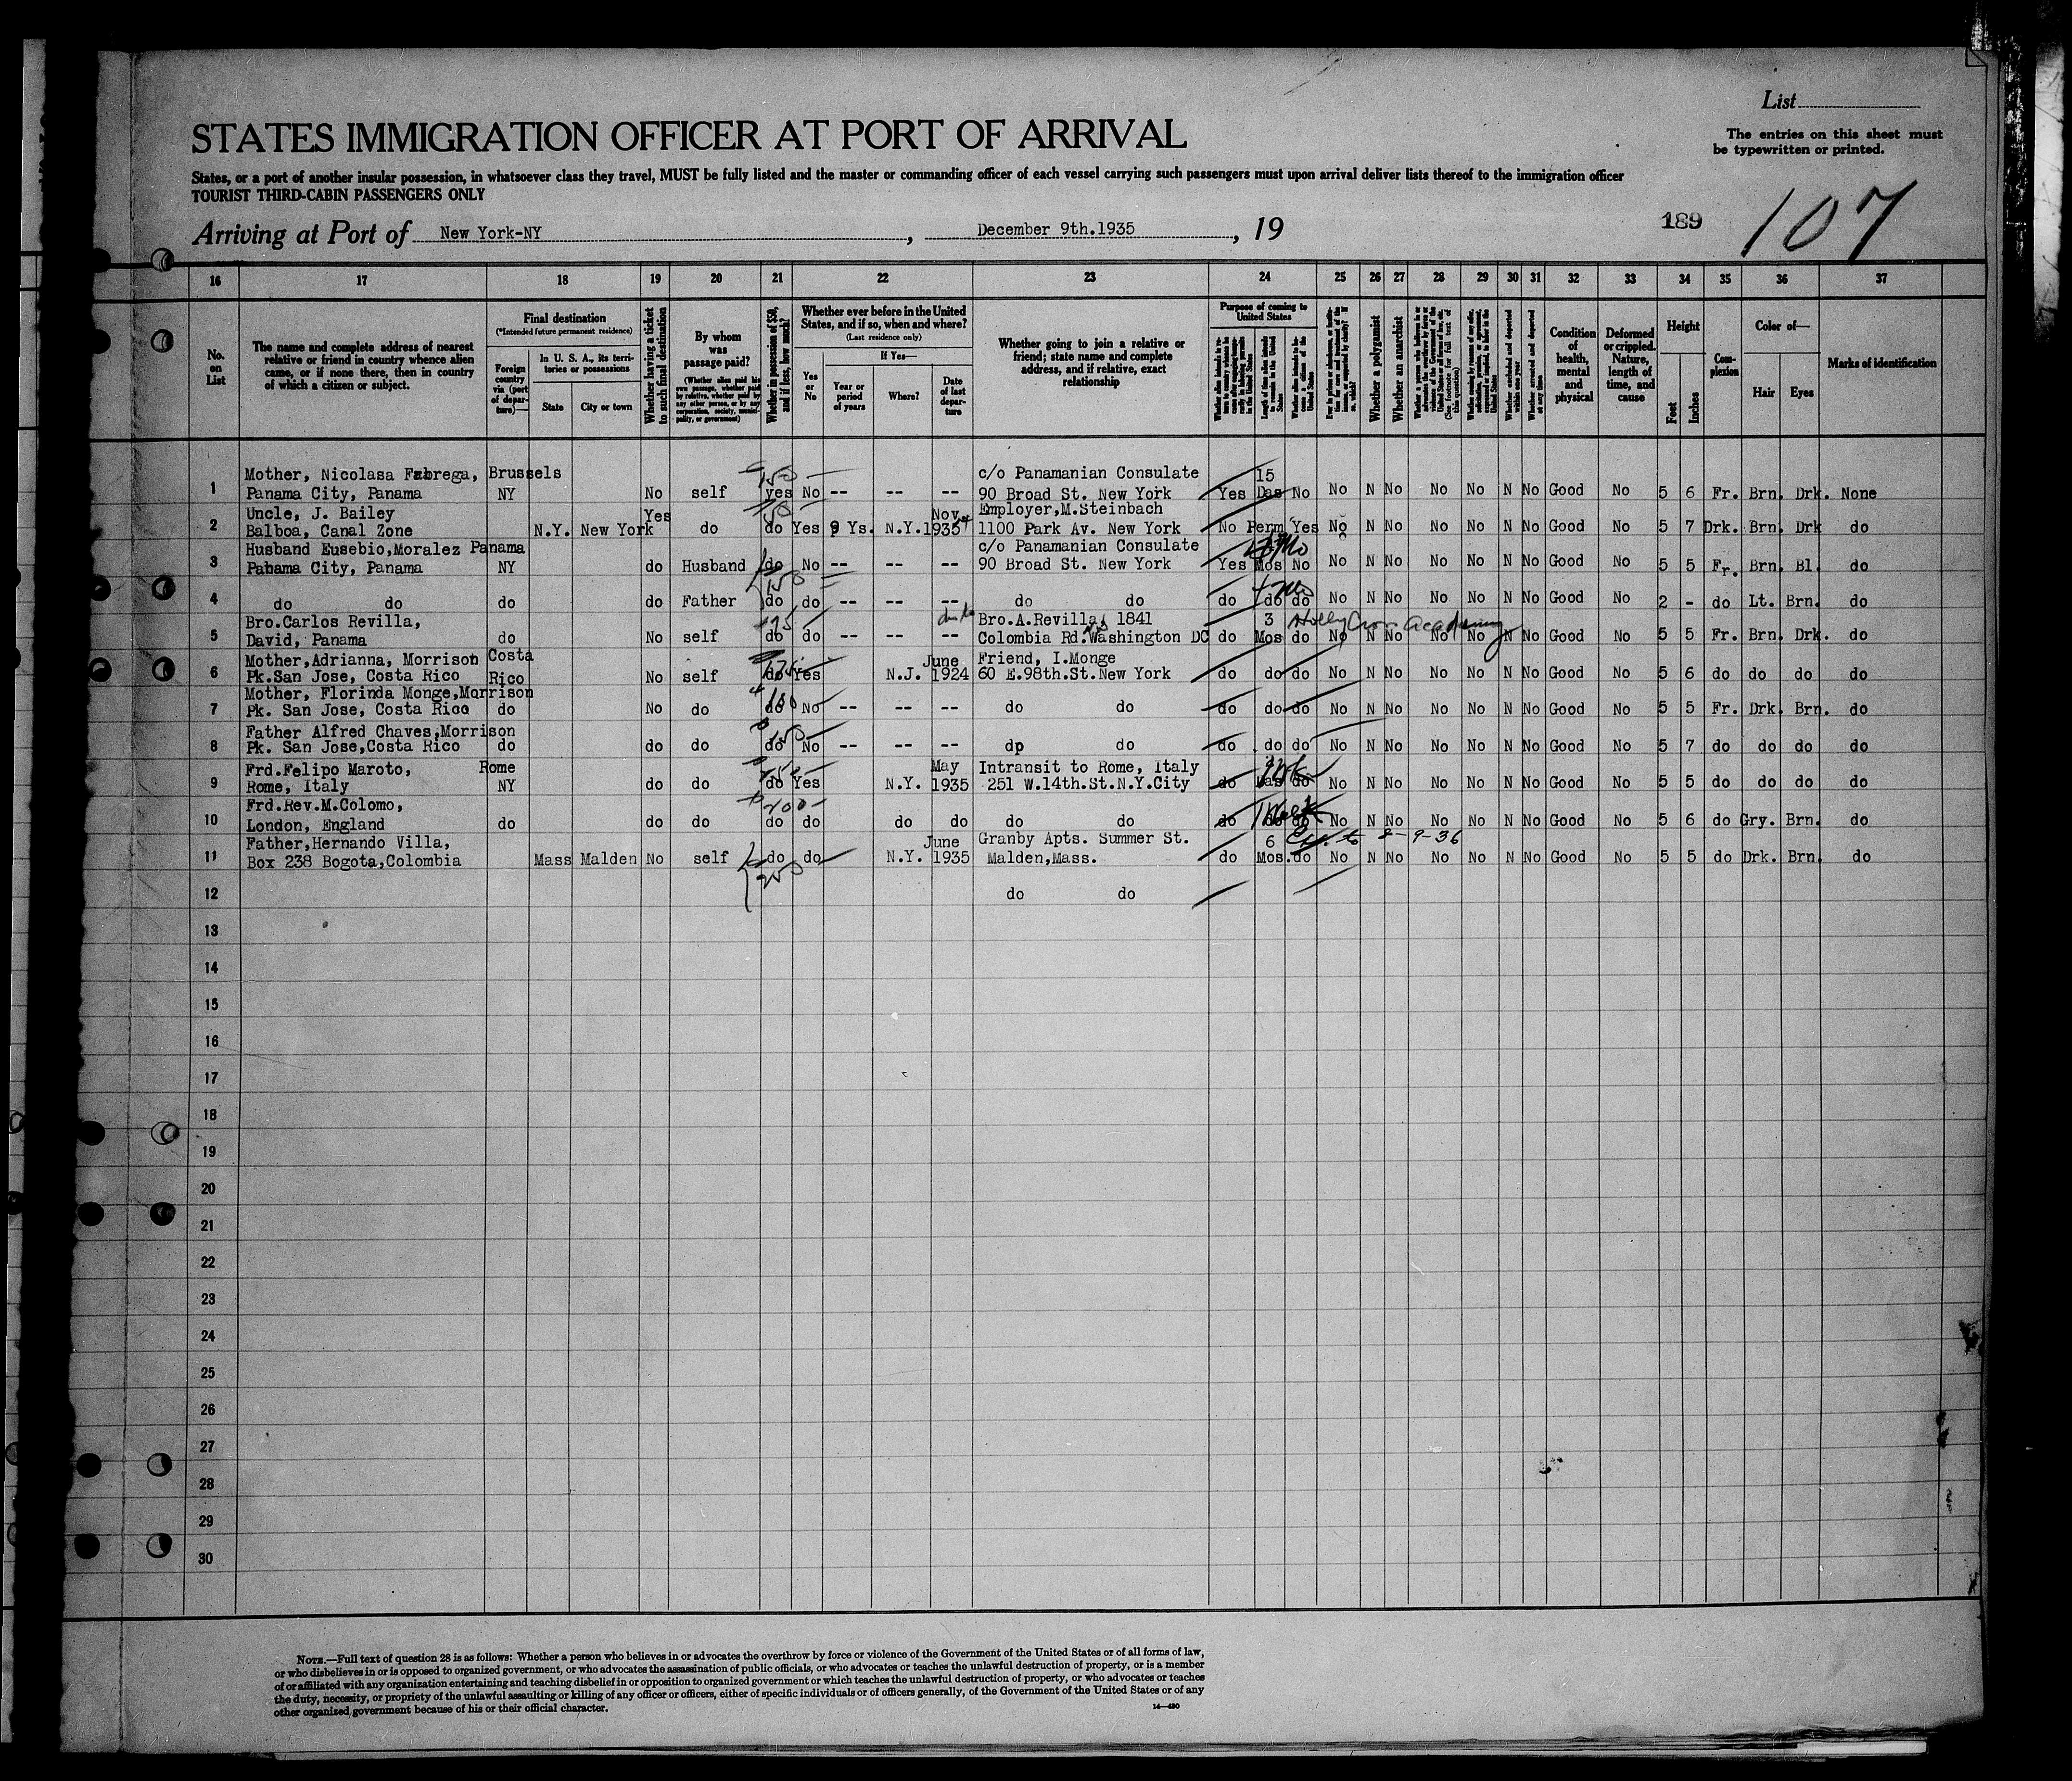 List
The entries on this sheet must
be typewritten or printed.
STATES IMMIGRATION OFFICER AT PORT OF ARRIVAL
States, or a port of another insular possession, in whatsoever class they travel, MUST be fully listed and the master or commanding officer of each vessel carrying such passengers must upon arrival deliver lists thereof to the immigration officer
TOURIST THIRD-CABIN PASSENGERS ONLY
Arriving at Port of New York-NY, December 9th.1935, 19
189 107
16 17 18 19 20 21 22 23 24 25 26 27 28 29 30 31 32 33 34 35 36 37
No. on List
The name and complete address of nearest relative or friend in country whence alien came, or if none there, then in country of which a citizen or subject.
Final destination
(*Intended future permanent residence)
Foreign country via (port of departure)—
In U. S. A., its territories or possessions
State
City or town
Whether having a ticket to such final destination
By whom was passage paid?
(Whether alien paid his own passage, whether paid by relative, whether paid by any other person, or by any corporation, society, municipality, or government)
Whether in possession of $50, and if less, how much?
Whether ever before in the United States, and if so, when and where?
(Last residence only)
Yes or No
If Yes—
Year or period of years
Where?
Date of last departure
Whether going to join a relative or friend; state name and complete address, and if relative, exact relationship
Purpose of coming to United States
Whether a polygamist
Whether an anarchist
Condition of health, mental and physical
Deformed or crippled. Nature, length of time, and cause
Height
Feet
Inches
Complexion
Color of—
Hair
Eyes
Marks of identification
Mother, Nicolasa Fabrega, Brussels 150 c/o Panamanian Consulate 15
1 Panama City, Panama NY No self yes No -- -- -- 90 Broad St. New York Yes Das No No N No No No N No Good No 5 6 Fr. Brn. Drk. None
Uncle, J. Bailey Yes 50 Nov. Employer,M.Steinbach
2 Balboa, Canal Zone N.Y. New York do do Yes 9 Ys. N.Y. 1935 1100 Park Av. New York No Perm Yes No N No No No N No Good No 5 7 Drk. Brn. Drk do
Husband Eusebio,Moralez Panama c/o Panamanian Consulate
3 Panama City, Panama NY do Husband do No -- -- -- 90 Broad St. New York Yes Mos No No N No No No N No Good No 5 5 Fr. Brn. Bl. do
150
4 do do do do Father do do -- -- -- do do do do do No N No No No N No Good No 2 - do Lt. Brn. do
Bro.Carlos Revilla, Bro.A.Revilla, 1841 3 Holly Cross Academy
5 David, Panama do No self do do -- -- -- Colombia Rd. Washington DC do Mos do No N No No No N No Good No 5 5 Fr. Brn. Drk. do
Mother,Adrianna, Morrison Costa June Friend, I.Monge
6 Pk.San Jose, Costa Rico Rico No self do Yes N.J. 1924 60 E.98th.St.New York do do do No N No No No N No Good No 5 6 do do do do
Mother, Florinda Monge,Morrison 100
7 Pk. San Jose, Costa Rico do No do do No -- -- -- do do do do do No N No No No N No Good No 5 5 Fr. Drk. Brn. do
Father Alfred Chaves,Morrison 150
8 Pk. San Jose,Costa Rico do do do do No -- -- -- do do do do do No N No No No N No Good No 5 7 do do do do
Frd.Felipo Maroto, Rome May Intransit to Rome, Italy
9 Rome, Italy NY do do do Yes N.Y. 1935 251 W.14th.St.N.Y.City do Das do No N No No No N No Good No 5 5 do do do do
Frd.Rev.M.Colomo, 200 1 Week
10 London, England do do do do do do do do do do do do No N No No No N No Good No 5 6 do Gry. Brn. do
Father,Hernando Villa, June Granby Apts. Summer St. 6 Ext. to 8-9-36
11 Box 238 Bogota,Colombia Mass Malden No self do do N.Y. 1935 Malden,Mass. do Mos. do No N No No No N No Good No 5 5 do Drk. Brn. do
250
12 do do
13
14
15
16
17
18
19
20
21
22
23
24
25
26
27
28
29
30
NOTE.—Full text of question 28 is as follows: Whether a person who believes in or advocates the overthrow by force or violence of the Government of the United States or of all forms of law,
or who disbelieves in or is opposed to organized government, or who advocates the assassination of public officials, or who advocates or teaches the unlawful destruction of property, or is a member
of or affiliated with any organization entertaining and teaching disbelief in or opposition to organized government or which teaches the unlawful destruction of property, or who advocates or teaches
the duty, necessity, or propriety of the unlawful assaulting or killing of any officer or officers, either of specific individuals or of officers generally, of the Government of the United States or of any
other organized government because of his or their official character.
14—480